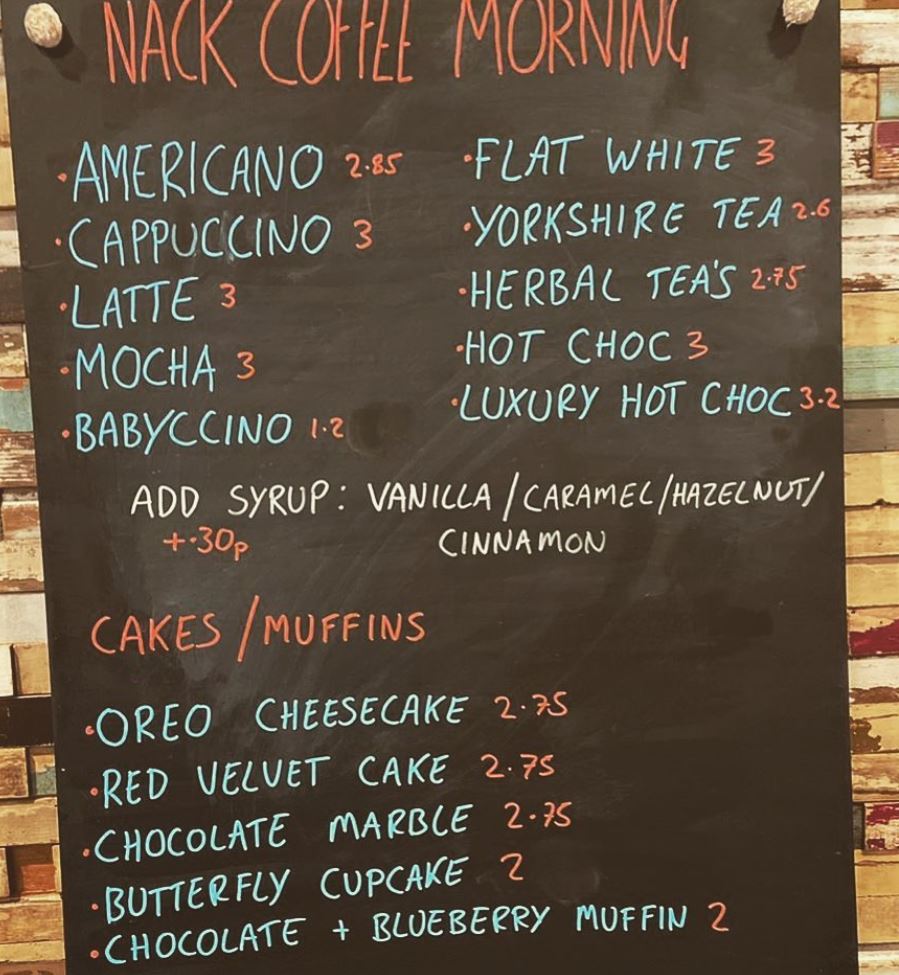 NACK COFFEE MORNING
·AMERICANO 2.85
·CAPPUCCINO 3
·LATTE 3
·MOCHA 3
·BABYCCINO 1.2
·FLAT WHITE 3
·YORKSHIRE TEA 2.6
·HERBAL TEA'S 2.75
·HOT CHOC 3
·LUXURY HOT CHOC 3.2
ADD SYRUP: VANILLA/CARAMEL/HAZELNUT/
+.30p CINNAMON
CAKES/MUFFINS
·OREO CHEESECAKE 2.75
·RED VELVET CAKE 2.75
·CHOCOLATE MARBLE 2.75
·BUTTERFLY CUPCAKE 2
·CHOCOLATE + BLUEBERRY MUFFIN 2